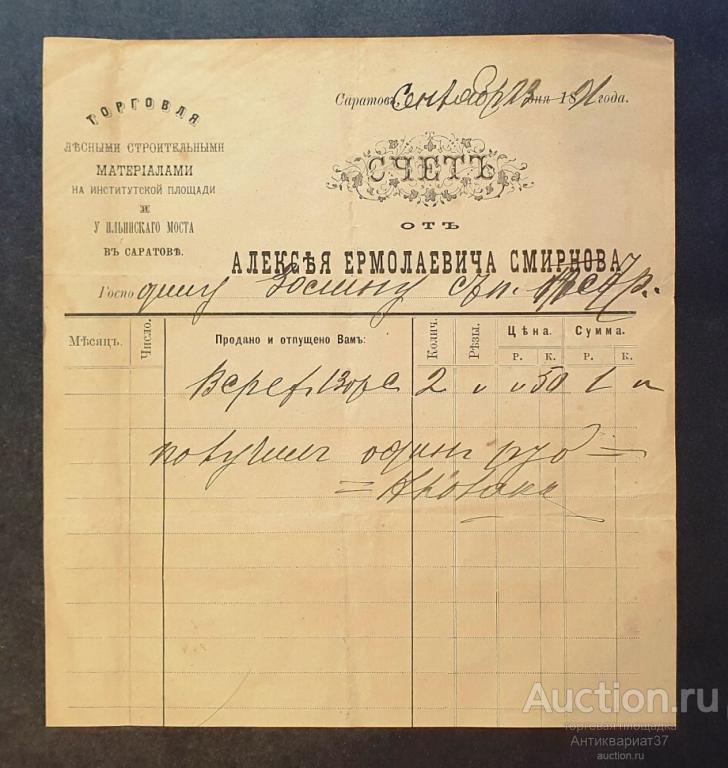 ТОРГОВЛЯ
ЛѢСНЫМИ СТРОИТЕЛЬНЫМИ
МАТЕРІАЛАМИ
НА ИНСТИТУТСКОЙ ПЛОЩАДИ
И
У ИЛЬИНСКАГО МОСТА
ВЪ САРАТОВѢ.
Саратовъ, Сентябр 23 дня 1891 года.
СЧЕТЪ
ОТЪ
АЛЕКСѢЯ ЕРМОЛАЕВИЧА СМИРНОВА
Госпо дину
Мѣсяцъ. Число. Продано и отпущено Вамъ: Колич. Рѣзы. Цѣна. Сумма.
Р. К. Р. К.
2 " " 50 1 "
получилъ один руб =
Auction.ru
торговая площадка
Антиквариат37
auction.ru